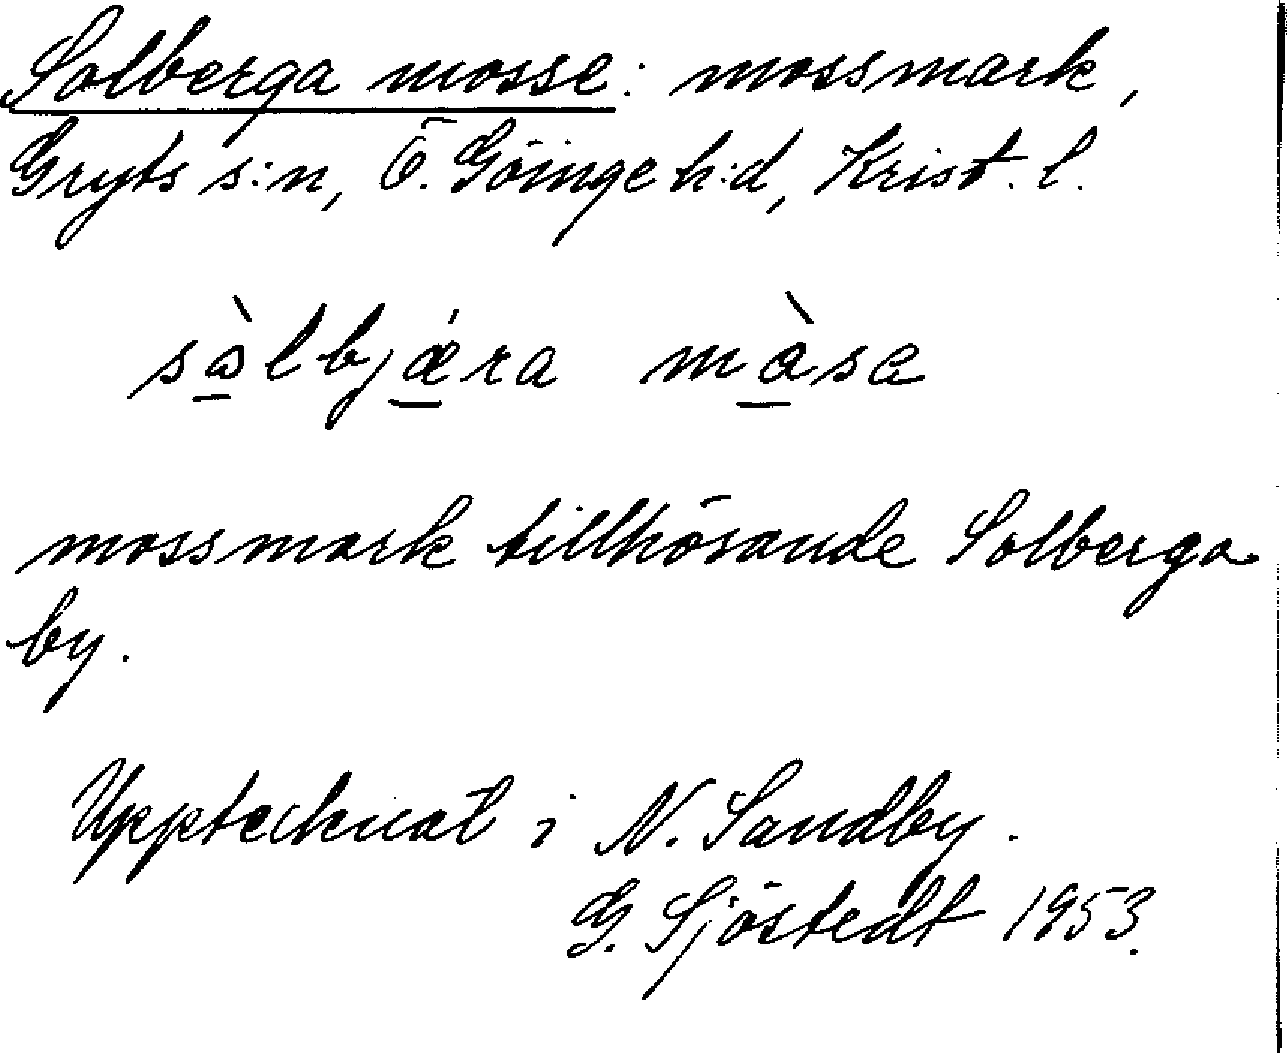 Solberga mosse: mossmark,
Gryts s:n, Ö. Göinge h:d, Krist. l.
sàlbjǽra màsa
mossmark tillhörande Solberga
by.
Upptecknat i N. Sandby.
G. Sjöstedt 1953.